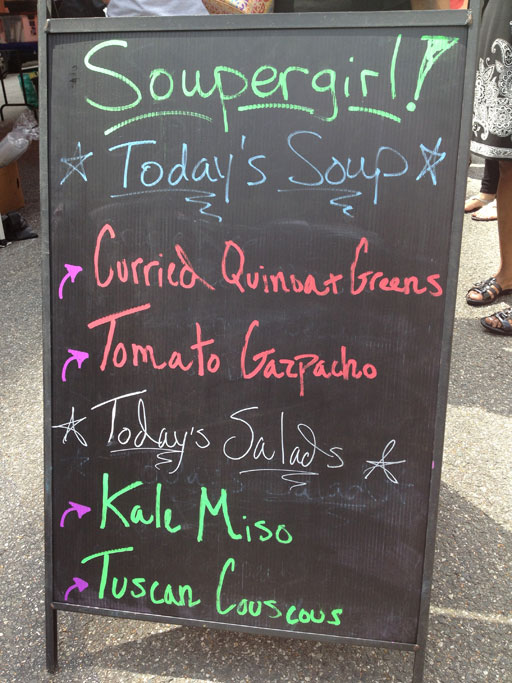 Soupergirl!
Today's Soup
Curried Quinoa + Greens
Tomato Gazpacho
Today's Salads
Kale Miso
Tuscan Couscous